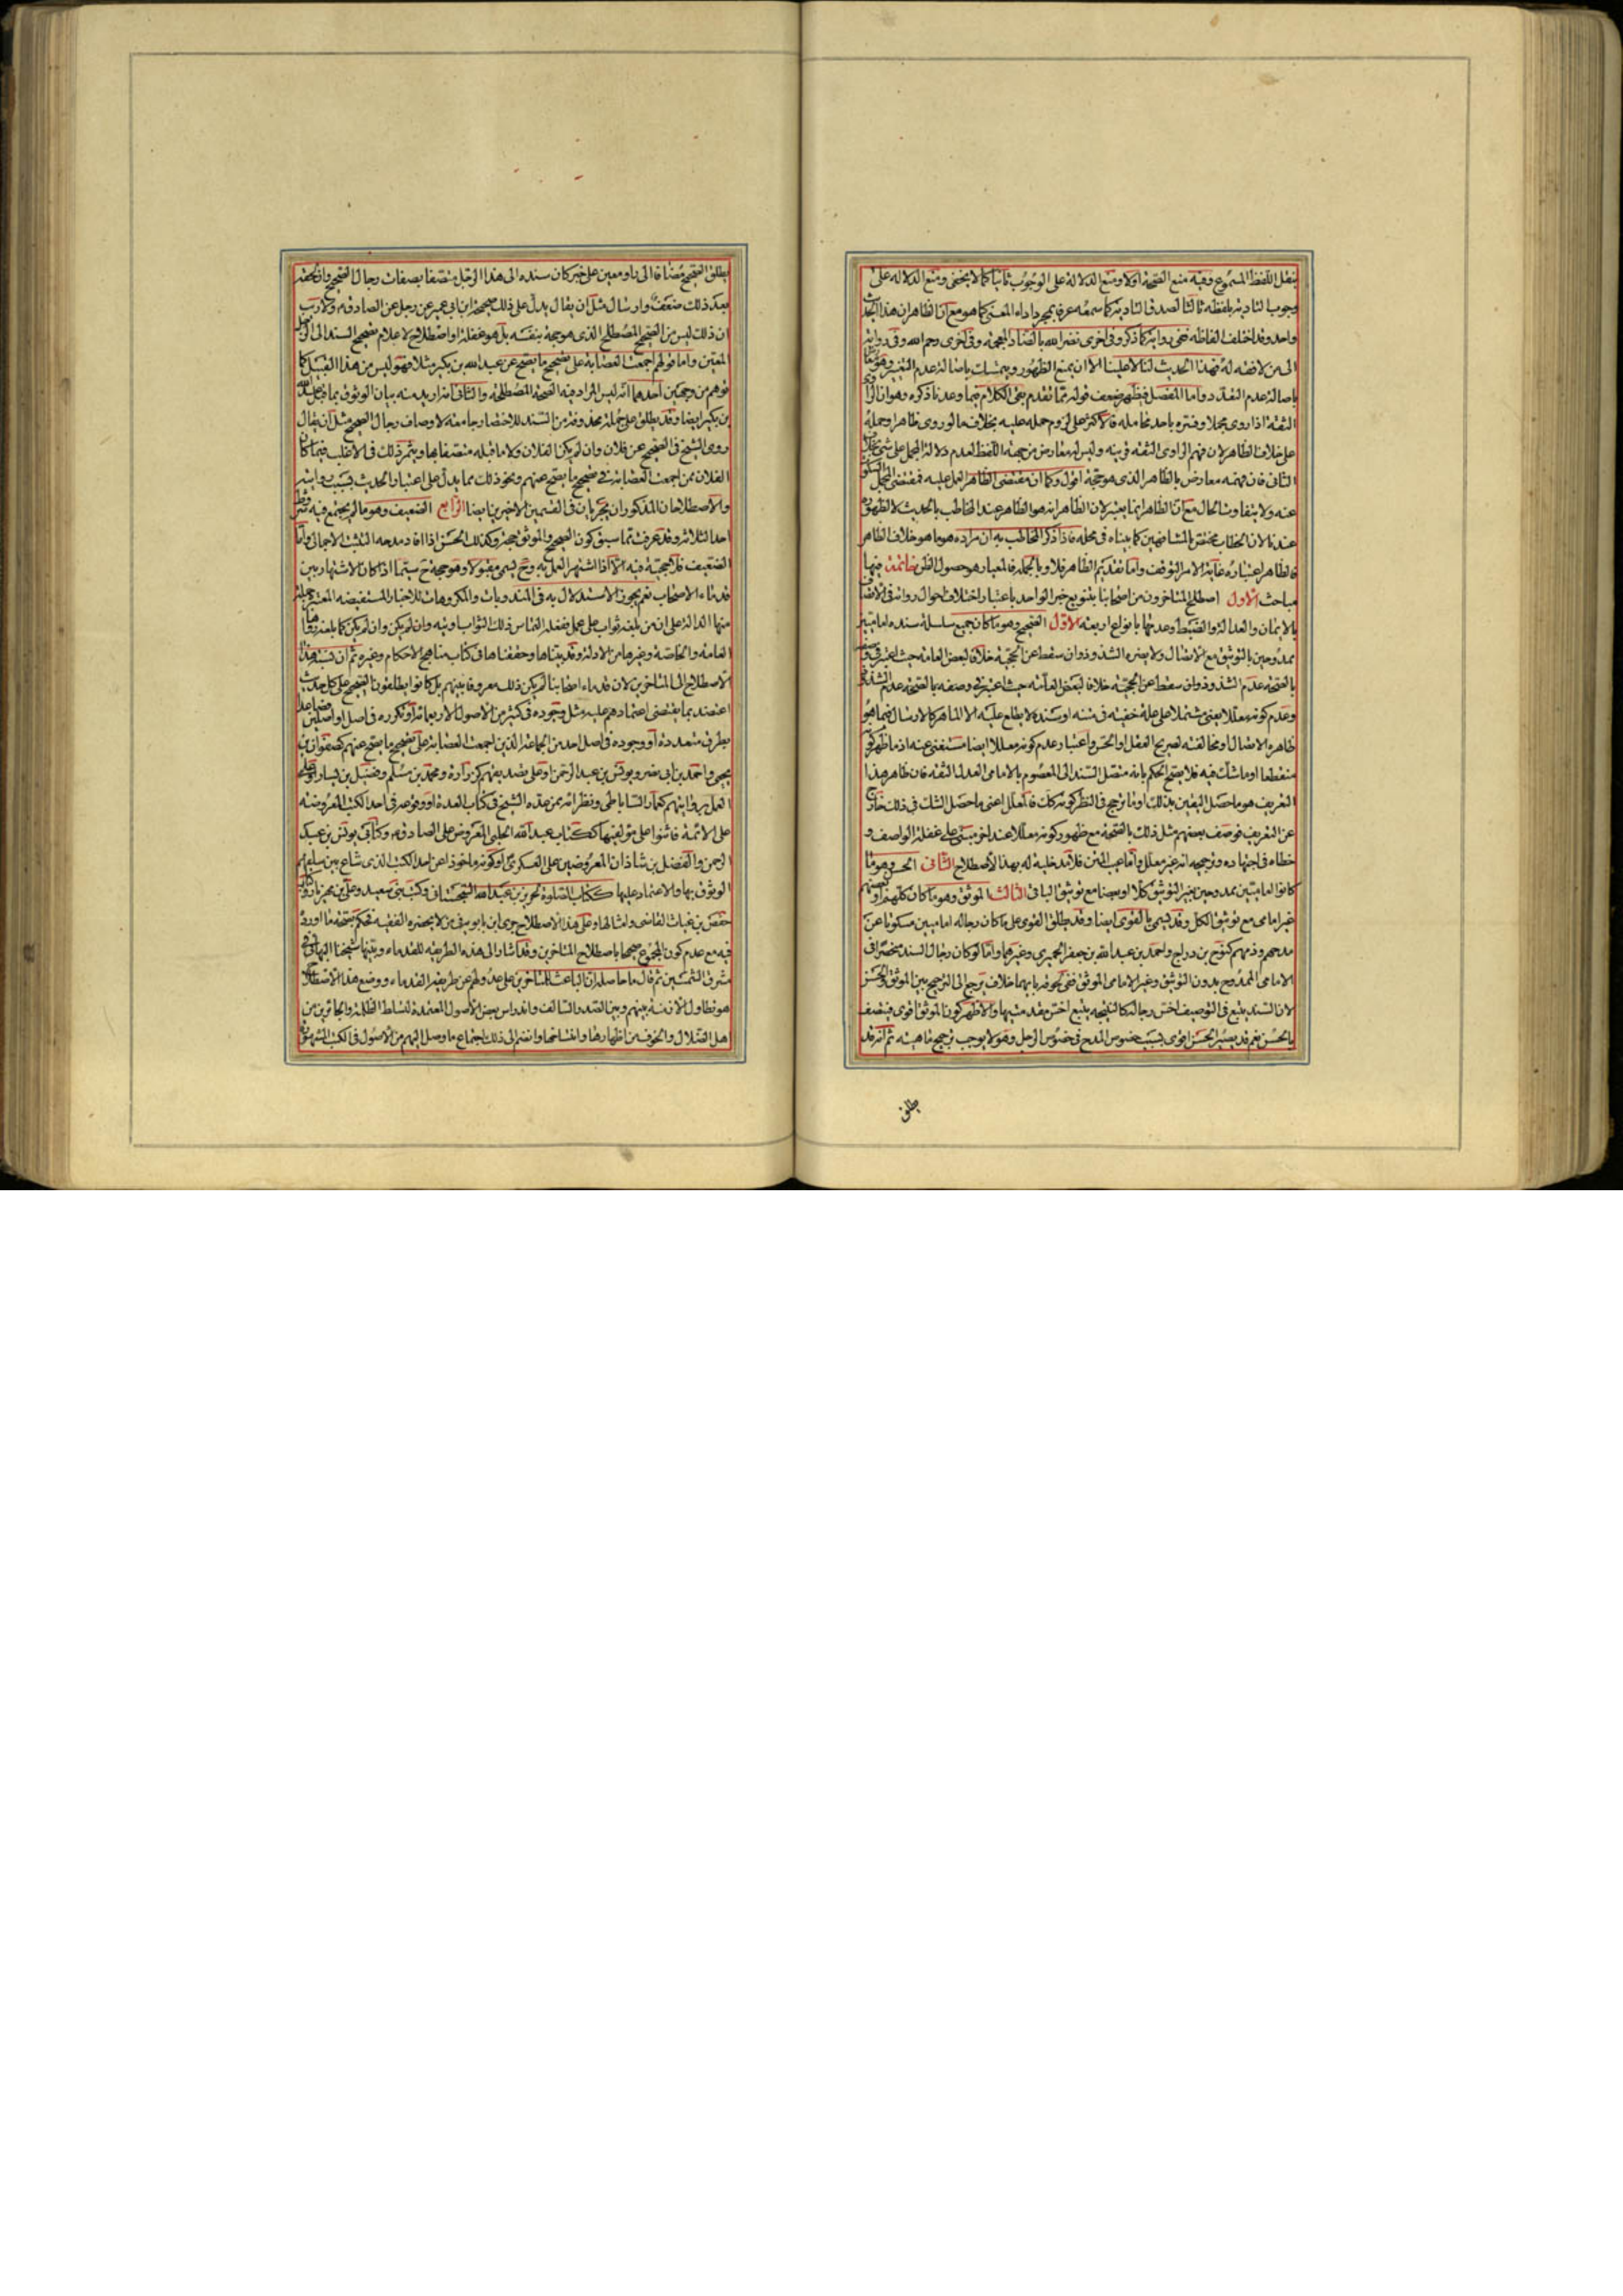 بنقل اللفظ المسموع وفيه منع الصحة اولا ومنع الدلالة على الوجوب ثانيا كما لا يخفى ومنع الدلالة على
وجوب التادية بلفظه ثالثا لصدق التادية كما سمعه عرفا بمجرد اداء المعنى كما هو مع ان الظاهر ان هذا الحديث
واحد وقد اختلف الفاظه ففي رواية كما ذكر وفي اخرى نضر الله بالضاد المعجمة وفي اخرى رحم الله وفي رواية
الى من لا فقه له فهذا الحديث لنا لا علينا الا ان يمنع الظهور ويتمسك باصالة عدم التغير وهو
باصالة عدم التعدد واما المفصل فيظهر ضعف قوله مما تقدم بقي الكلام فيما وعدنا ذكره وهو ان
الثقة اذا روى مجملا وفسره باحد محامله فالاكثر على لزوم حمله عليه بخلاف ما لو روى ظاهرا وحمله
على خلاف الظاهر لان فهم الراوي الثقة قرينة وليس له معارض من جهة اللفظ لعدم دلالة المجمل على شيء بخلاف
الثاني فان فهمه معارض بالظاهر الذي هو حجة اقول وكما ان مقتضى الظاهر العمل عليه فمقتضى المجمل السكوت
عنه ولا يتفاوت الحال مع ان الظاهر انما يعتبر لان الظاهر انه هو الظاهر عند المخاطب بالحديث لا الظهور
عندنا لان الخطاب مختص بالمشافهين كما بيناه في محله فاذا ذكر المخاطب به ان مراده هو ما هو خلاف الظاهر
فالظاهر اعتباره غاية الامر التوقف واما تقديم الظاهر فلا وبالجملة فالمعيار هو حصول الظن خاتمة فيها
مباحث الاول اصطلح المتاخرون من اصحابنا بتنويع خبر الواحد باعتبار اختلاف احوال رواته في الاتصاف
بالايمان والعدالة والضبط وعدمها بانواع اربعة الاول الصحيح وهو ما كان جميع سلسلة سنده اماميين
ممدوحين بالتوثيق مع الاتصال ولا يضره الشذوذ وان سقط عن الحجية خلافا لبعض العامة حيث اعتبر في وصفه
بالصحة عدم الشذوذ وان سقط عن الحجية خلافا لبعض العامة حيث اعتبر في وصفه بالصحة عدم الشذوذ
وعدم كونه معللا يعني مشتملا على علة خفية في متنه او سنده لا يطلع عليه الا الماهر كالارسال فيما هو
ظاهره الاتصال او مخالفته لصريح العقل او الحس واعتبار عدم كونه معللا ايضا مستغنى عنه اذ ما ظهر كونه
منقطعا او ما شك فيه فلا يصح الحكم بانه متصل السند الى المعصوم بالامامي العدل الثقة فان ظاهر هذا
التعريف هو ما حصل اليقين بذلك او ما ترجح في النظر كونه كذلك فالمعلل اعني ما حصل الشك في ذلك خارج
عن التعريف فوصف بعضهم مثل ذلك بالصحة مع ظهور كونه معللا عند اخر مبتني على غفلة الواصف و
خطاه في اجتهاده وترجيحه انه غير معلل واما عيب المتن فلا مدخلية له بهذا الاصطلاح الثاني الحسن وهو ما
كانوا اماميين ممدوحين بغير التوثيق كلا او بعضا مع توثيق الباقي الثالث الموثق وهو ما كان كلهم او بعضهم
غير امامي مع توثيق الكل وقد يسمى بالقوي ايضا وقد يطلق القوي على ما كان رجاله اماميين مسكوتا عن
مدحهم وذمهم كنوح بن دراج واحمد بن عبد الله بن جعفر الحميري وغيرهما واما لو كان رجال السند منحصرا في
الامامي الممدوح بدون التوثيق وغير الامامي الموثق ففي لحوقه بايهما خلاف يرجع الى الترجيح بين الموثق والحسن
لان السند يتبع في التوصيف اخس رجاله كالنتيجة يتبع اخس مقدمتيها والاظهر كون الموثق اقوى فيتصف
بالحسن نعم قد يصير الحسن اقوى بسبب خصوص المدح في خصوص الرجل وهو لا يوجب ترجيح ماهيته ثم انه قد
يطلق
يطلق الصحيح مضافا الى راو معين على خبر كان سنده الى هذا الرجل متصفا بصفات رجال الصحيح وان لحقه
بعد ذلك ضعف وارسال مثل ان يقال يدل على ذلك صحيحة ابن ابي عمير عن رجل عن الصادق م ولا ريب
ان ذلك ليس من الصحيح المصطلح الذي هو حجة بنفسه بل هو غفلة او اصطلاح لاعلام تصحيح السند الى الرجل
المعين واما قولهم اجمعت العصابة على تصحيح ما يصح عن عبد الله بن بكير مثلا فهو ليس من هذا القبيل كما
توهم من وجهين احدهما انه ليس المراد فيه الصحة المصطلحة والثاني انه اريد منه بيان الوثوق بما قبل عبد الله
بن بكير ايضا وقد يطلق على جملة محذوفة من السند للاختصار جامعة لاوصاف رجال الصحيح مثل ان يقال
روى الشيخ في الصحيح عن فلان وان لم يكن الفلان ولا ما قبله متصفا بها ويثمر ذلك في الاغلب فيما كان
الفلان ممن اجمعت العصابة في تصحيح ما يصح عنهم ونحو ذلك مما يدل على اعتبار الحديث بسبب روايته
والاصطلاحان المذكوران يجريان في القسمين الاخيرين ايضا الرابع الضعيف وهو ما لم يجتمع فيه شروط
احد الثلاثة وقد عرفت مما سبق كون الصحيح والموثق حجة وكذلك الحسن اذا افاد مدحه التثبت الاجمالي واما
الضعيف فلا حجية فيه الا اذا اشتهر العمل به وح يسمى مقبولا وهو حجة ح سيما اذا كان الاشتهار بين
قدماء الاصحاب نعم يجوز الاستدلال به في المندوبات والمكروهات للاخبار المستفيضة المعتبرة جملة
منها الدالة على ان من بلغه ثواب على عمل ففعله التماس ذلك الثواب اوتيه وان لم يكن كما بلغه رواها
العامة والخاصة وغيرها من الادلة وقد بيناها وحققناها في كتاب مناهج الاحكام وغيره ثم ان نسبة هذا
الاصطلاح الى المتاخرين لان قدماء اصحابنا لم يكن ذلك معروفا بينهم بل كانوا يطلقون الصحيح على كل حديث
اعتضد بما يقتضي اعتمادهم عليه مثل وجوده في كثير من الاصول الاربعمائة او تكرره في اصل او اصلين فصاعدا
بطرق متعددة او وجوده في اصل احد من الجماعة الذين اجمعت العصابة على تصحيح ما يصح عنهم كصفوان بن
يحيى واحمد بن ابي نصر ويونس بن عبد الرحمن او على تصديقهم كزرارة ومحمد بن مسلم وفضيل بن يسار او على
العمل بروايتهم كعمار الساباطي ونظرائه ممن عدهم الشيخ في كتاب العدة او وقوعه في احد الكتب المعروضة
على الائمة فاثنوا على مؤلفيها ككتاب عبيد الله الحلبي المعروض على الصادق م وكتابي يونس بن عبد
الرحمن والفضل بن شاذان المعروضين على العسكري او كونه ماخوذا عن احد الكتب الذي شاع بين سلفهم
الوثوق بها والاعتماد عليها ككتاب الصلوة لحريز بن عبد الله السجستاني وكتب بني سعيد وعلي بن مهزيار وكتاب
حفص بن غياث القاضي وامثالها وعلى هذا الاصطلاح جرى ابن بابويه في من لا يحضره الفقيه فحكم بصحة ما اورده
فيه مع عدم كون المجموع صحيحا باصطلاح المتاخرين وقد اشار الى هذه الطريقة للقدماء وبينها شيخنا البهائي في
مشرق الشمسين ثم قال ما حاصله ان الباعث للمتاخرين على عدولهم عن طريقة القدماء ووضع هذا الاصطلاح
هو تطاول الازمنة بينهم وبين الصدر السالف واندراس بعض الاصول المعتمدة لتسلط الظلمة والجائرين من
اهل الضلال والخوف من اظهارها وانتساخها وانضم الى ذلك اجتماع ما وصل اليهم من الاصول في الكتب المشهورة